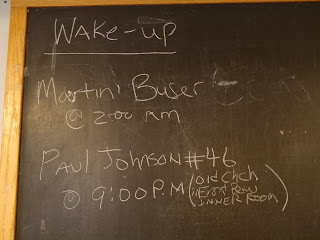 WAKE-UP
Martin Buser
@ 2:00 am
PAUL JOHNSON #46
@ 9:00 P.M (Old Chch
Front Row
INNER ROOM)